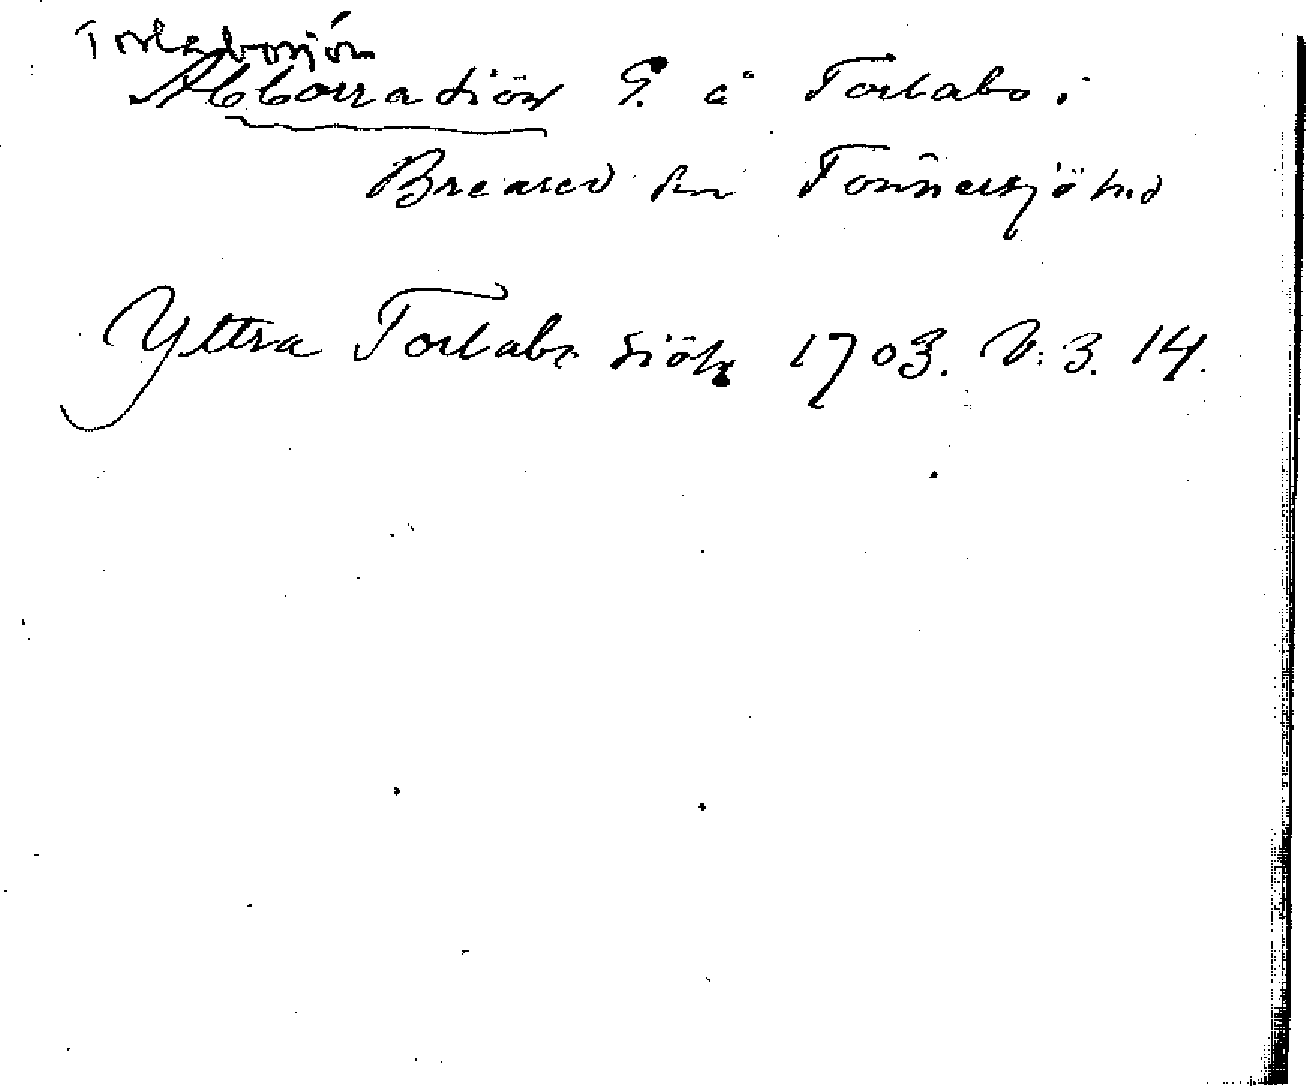 Torlabosjön
Abborrasiön G. å Torlabo i
Breared sn Tönnersjö hd
Yttra Torlabo siöh 1703. V: 3. 14.